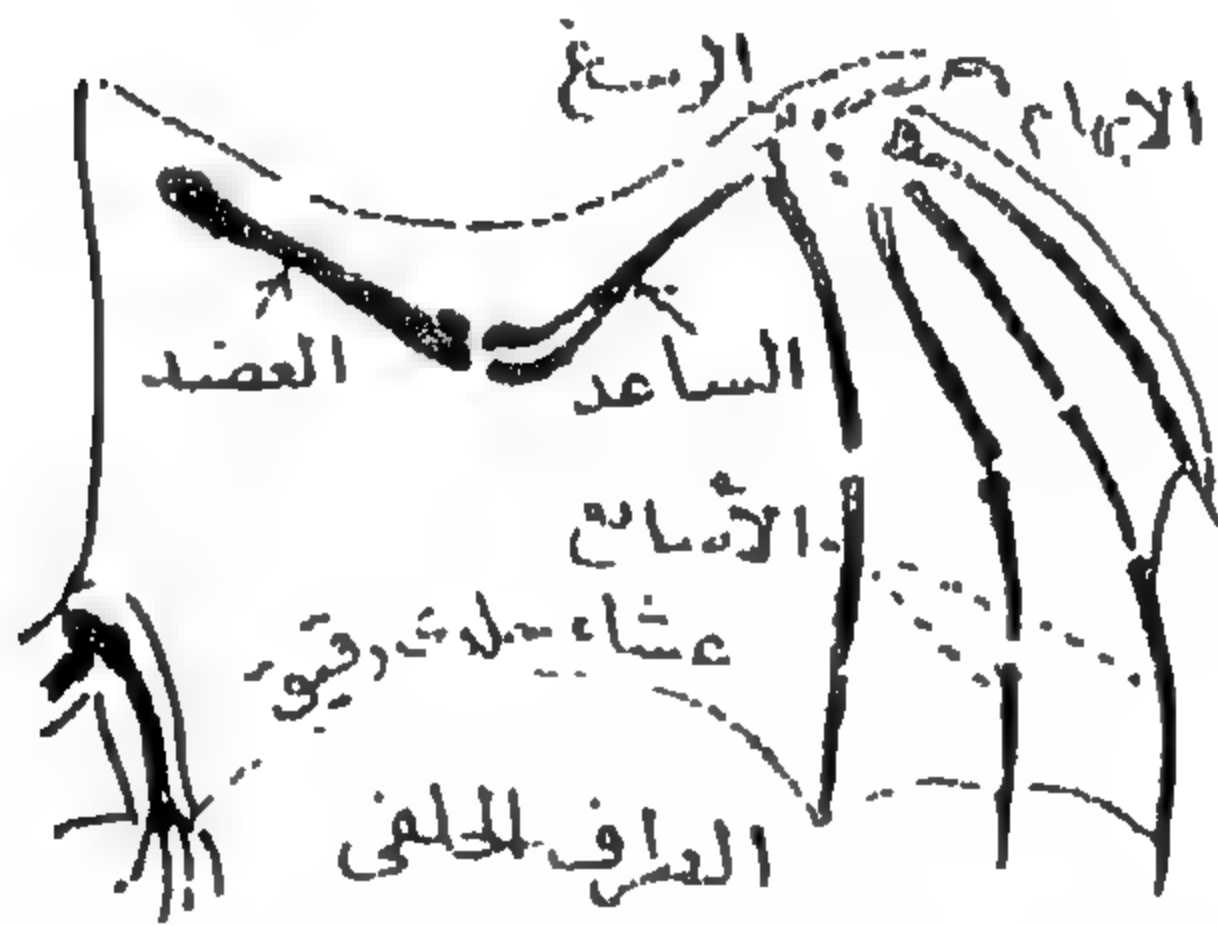 الرسغ
الابهام
العضد
الساعد
الأصابع
غشاء جلدى رقيق
الطرف الخلفى